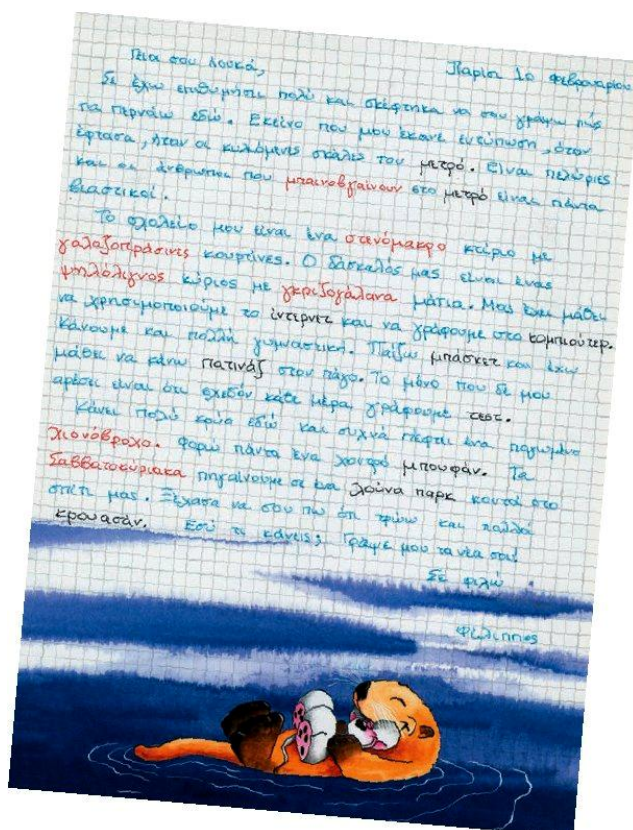 Γεια σου Λουκά, Παρίσι 1ο Φεβρουαρίου
Σε έχω επιθυμήσει πολύ και σκέφτηκα να σου γράψω πώς
τα περνάω εδώ. Εκείνο που μου έκανε εντύπωση, όταν
έφτασα, ήταν οι κυλιόμενες σκάλες του μετρό. Είναι πελώριες
και οι άνθρωποι που μπαινοβγαίνουν στο μετρό είναι πάντα
βιαστικοί.
Το σχολείο μου είναι ένα στενόμακρο κτίριο με
γαλαζοπράσινες κουρτίνες. Ο δάσκαλός μας είναι ένας
ψηλόλιγνος κύριος με γκριζογάλανα μάτια. Μας έχει μάθει
να χρησιμοποιούμε το ίντερνετ και να γράφουμε στο κομπιούτερ.
Κάνουμε και πολλή γυμναστική. Παίζω μπάσκετ και έχω
μάθει να κάνω πατινάζ στον πάγο. Το μόνο που δε μου
αρέσει είναι ότι σχεδόν κάθε μέρα γράφουμε τεστ.
Κάνει πολύ κρύο εδώ και συχνά πέφτει ένα παγωμένο
χιονόβροχο. Φορώ πάντα ένα χοντρό μπουφάν. Τα
Σαββατοκύριακα πηγαίνουμε σε ένα λούνα παρκ κοντά στο
σπίτι μας. Ξέχασα να σου πω ότι τρώω και πολλά
κρουασάν. Εσύ τι κάνεις; Γράψε μου τα νέα σου!
Σε φιλώ
Φίλιππος